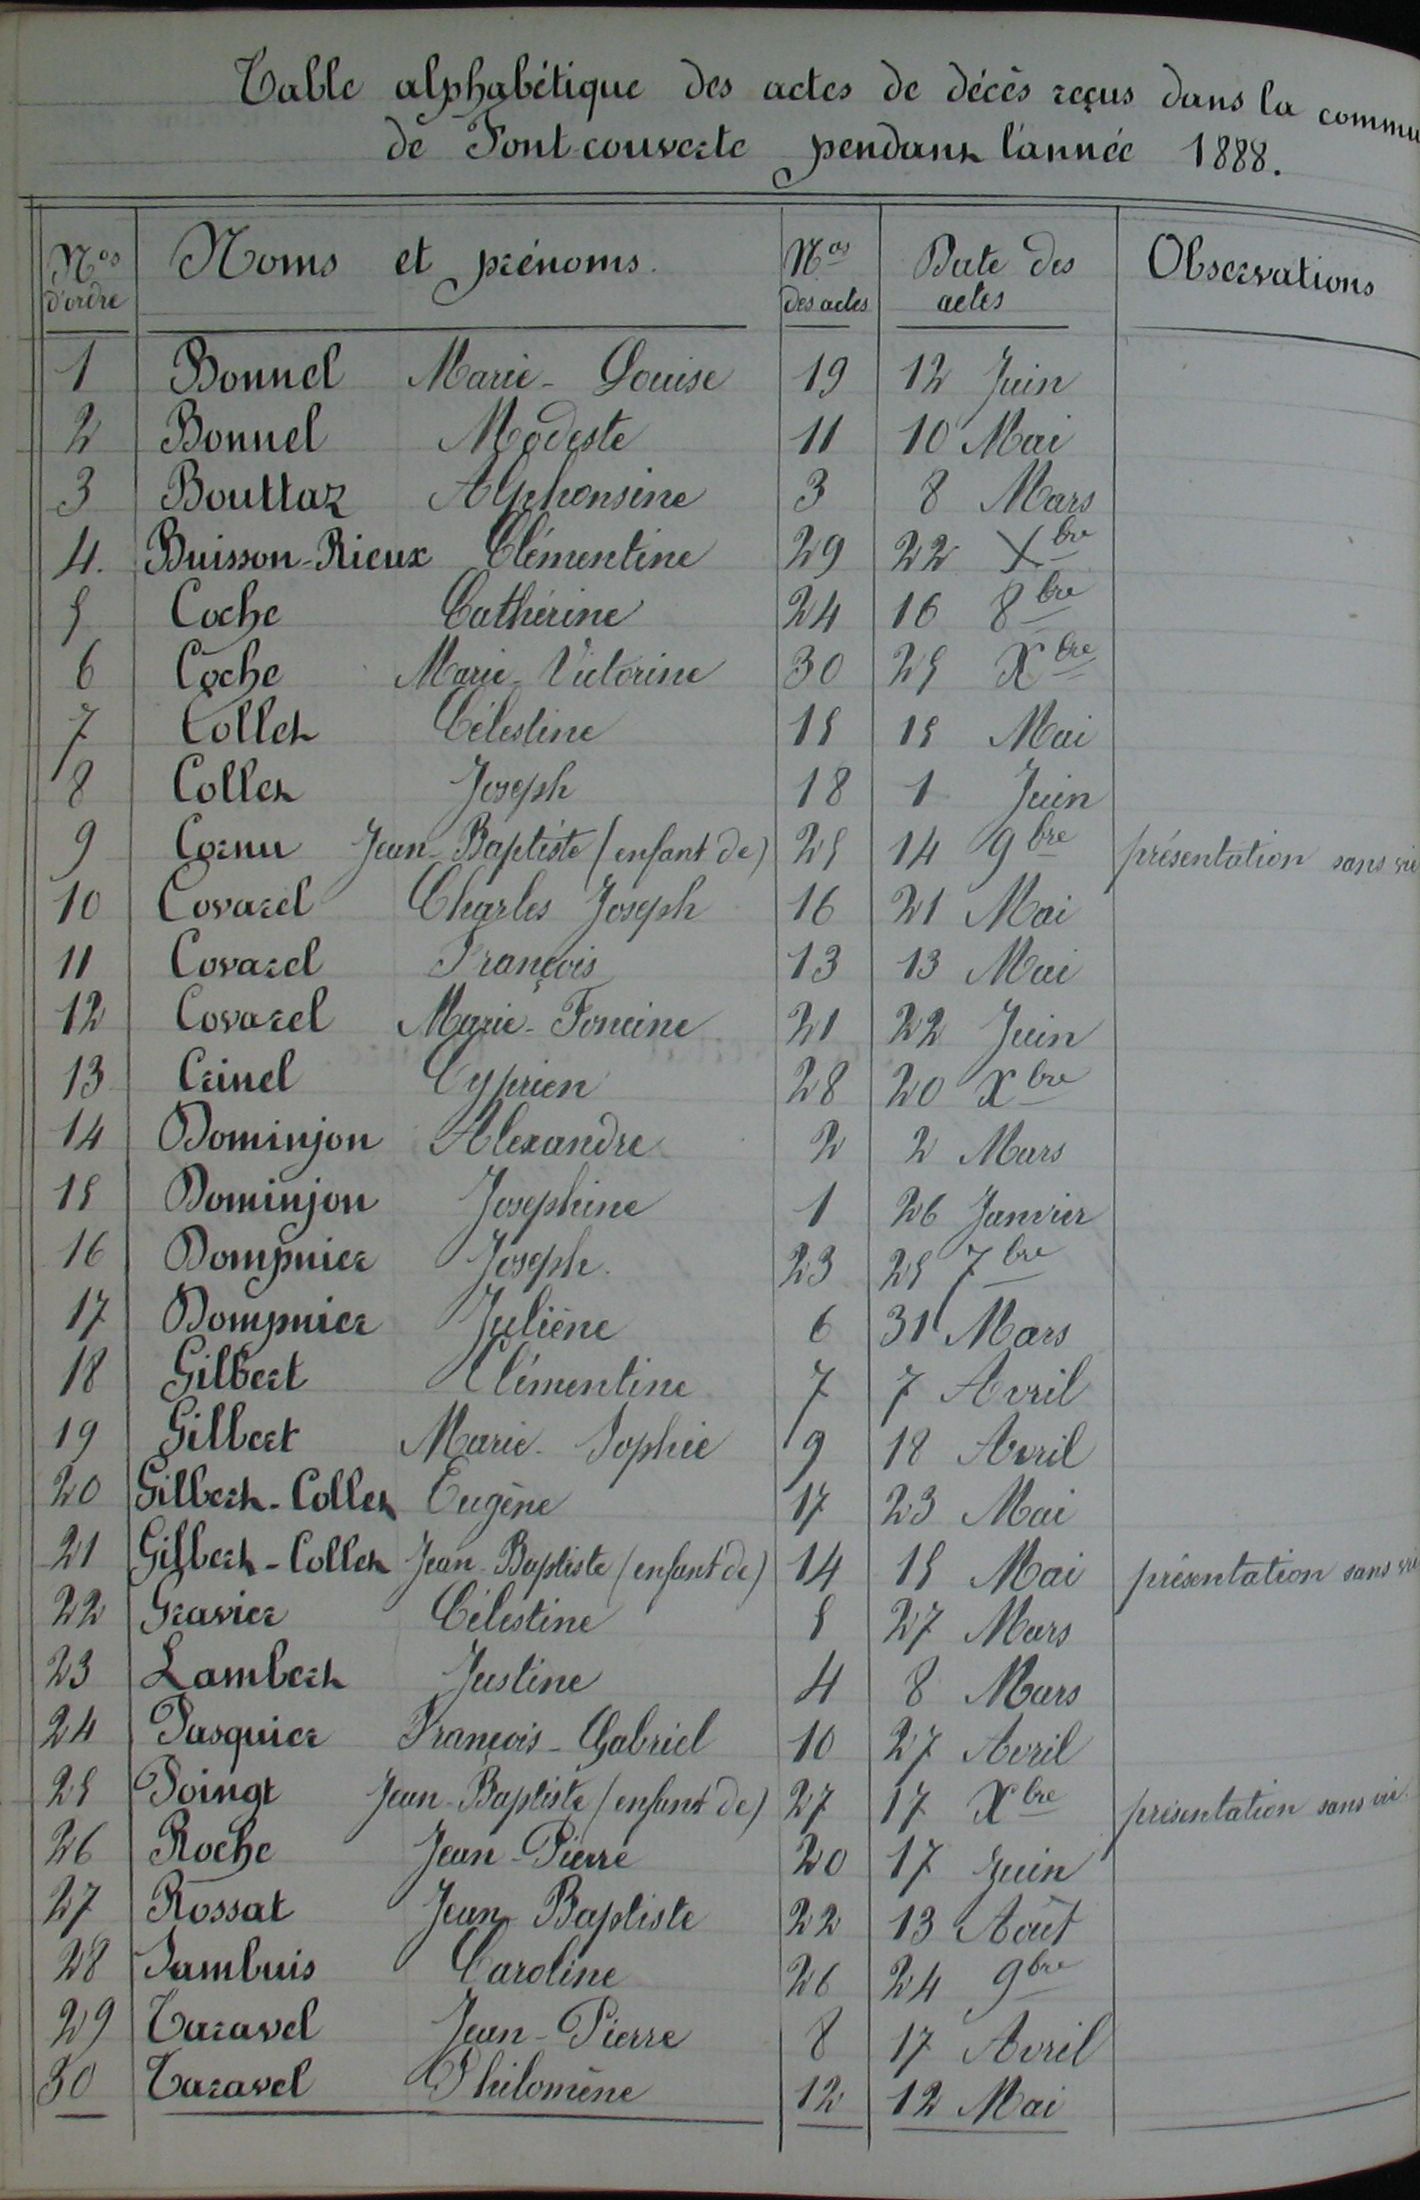 Table alphabétique des actes de décès reçus dans la commu
de Fontcouverte pendant l'année 1888.
Nos d'ordre Noms et prénoms. Nos des actes Date des actes Observations
1 Bonnel Marie-Louise 19 12 Juin
2 Bonnel Modeste 11 10 Mai
3 Bouttaz Alphonsine 3 8 Mars
4. Buisson-Rieux Clémentine 29 22 Xbre
5 Coche Cathérine 24 16 8bre
6 Coche Marie-Victorine 30 25 Xbre
7 Collet Célestine 15 15 Mai
8 Collet Joseph 18 1 Juin
9 Cornu Jean-Baptiste (enfant de) 25 14 9bre présentation sans vie
10 Covarel Charles Joseph 16 21 Mai
11 Covarel François 13 13 Mai
12 Covarel Marie-Foncine 21 22 Juin
13 Crinel Cyprien 28 20 Xbre
14 Dominjon Alexandre 2 2 Mars
15 Dominjon Josephine 1 26 Janvier
16 Dompnier Joseph. 23 25 7bre
17 Dompnier Juliène 6 31 Mars
18 Gilbert Clémentine 7 7 Avril
19 Gilbert Marie-Sophie 9 18 Avril
20 Gilbert-Collet Eugène 17 23 Mai
21 Gilbert-Collet Jean-Baptiste (enfant de) 14 15 Mai présentation sans vie
22 Gravier Célestine 5 27 Mars
23 Lambert Justine 4 8 Mars
24 Pasquier François-Gabriel 10 27 Avril
25 Poingt Jean-Baptiste (enfant de) 27 17 Xbre présentation sans vie.
26 Roche Jean-Pierre 20 17 Juin
27 Rossat Jean-Baptiste 22 13 Août
28 Sambuis Caroline 26 24 9bre
29 Taravel Jean-Pierre 8 17 Avril
30 Taravel Philomène 12 12 Mai